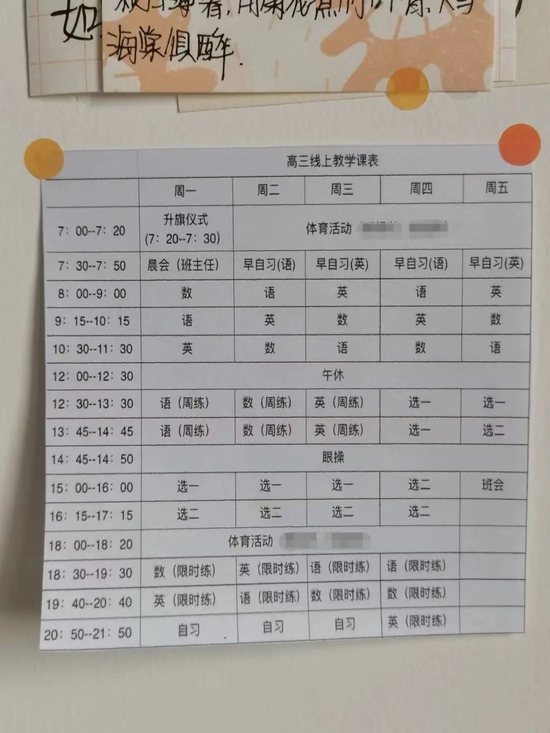 如
海棠俱醉.
高三线上教学课表
周一 周二 周三 周四 周五
7:00--7:20 升旗仪式 (7:20--7:30) 体育活动
7:30--7:50 晨会(班主任) 早自习(语) 早自习(英) 早自习(语) 早自习(英)
8:00--9:00 数 语 英 语 英
9:15--10:15 语 英 数 英 数
10:30--11:30 英 数 语 数 语
12:00--12:30 午休
12:30--13:30 语(周练) 数(周练) 英(周练) 选一 选一
13:45--14:45 语(周练) 数(周练) 英(周练) 选一 选二
14:45--14:50 眼操
15:00--16:00 选一 选一 选一 选二 班会
16:15--17:15 选二 选二 选二 选二
18:00--18:20 体育活动
18:30--19:30 数(限时练) 英(限时练) 语(限时练) 语(限时练)
19:40--20:40 英(限时练) 语(限时练) 数(限时练) 数(限时练)
20:50--21:50 自习 自习 自习 英(限时练)